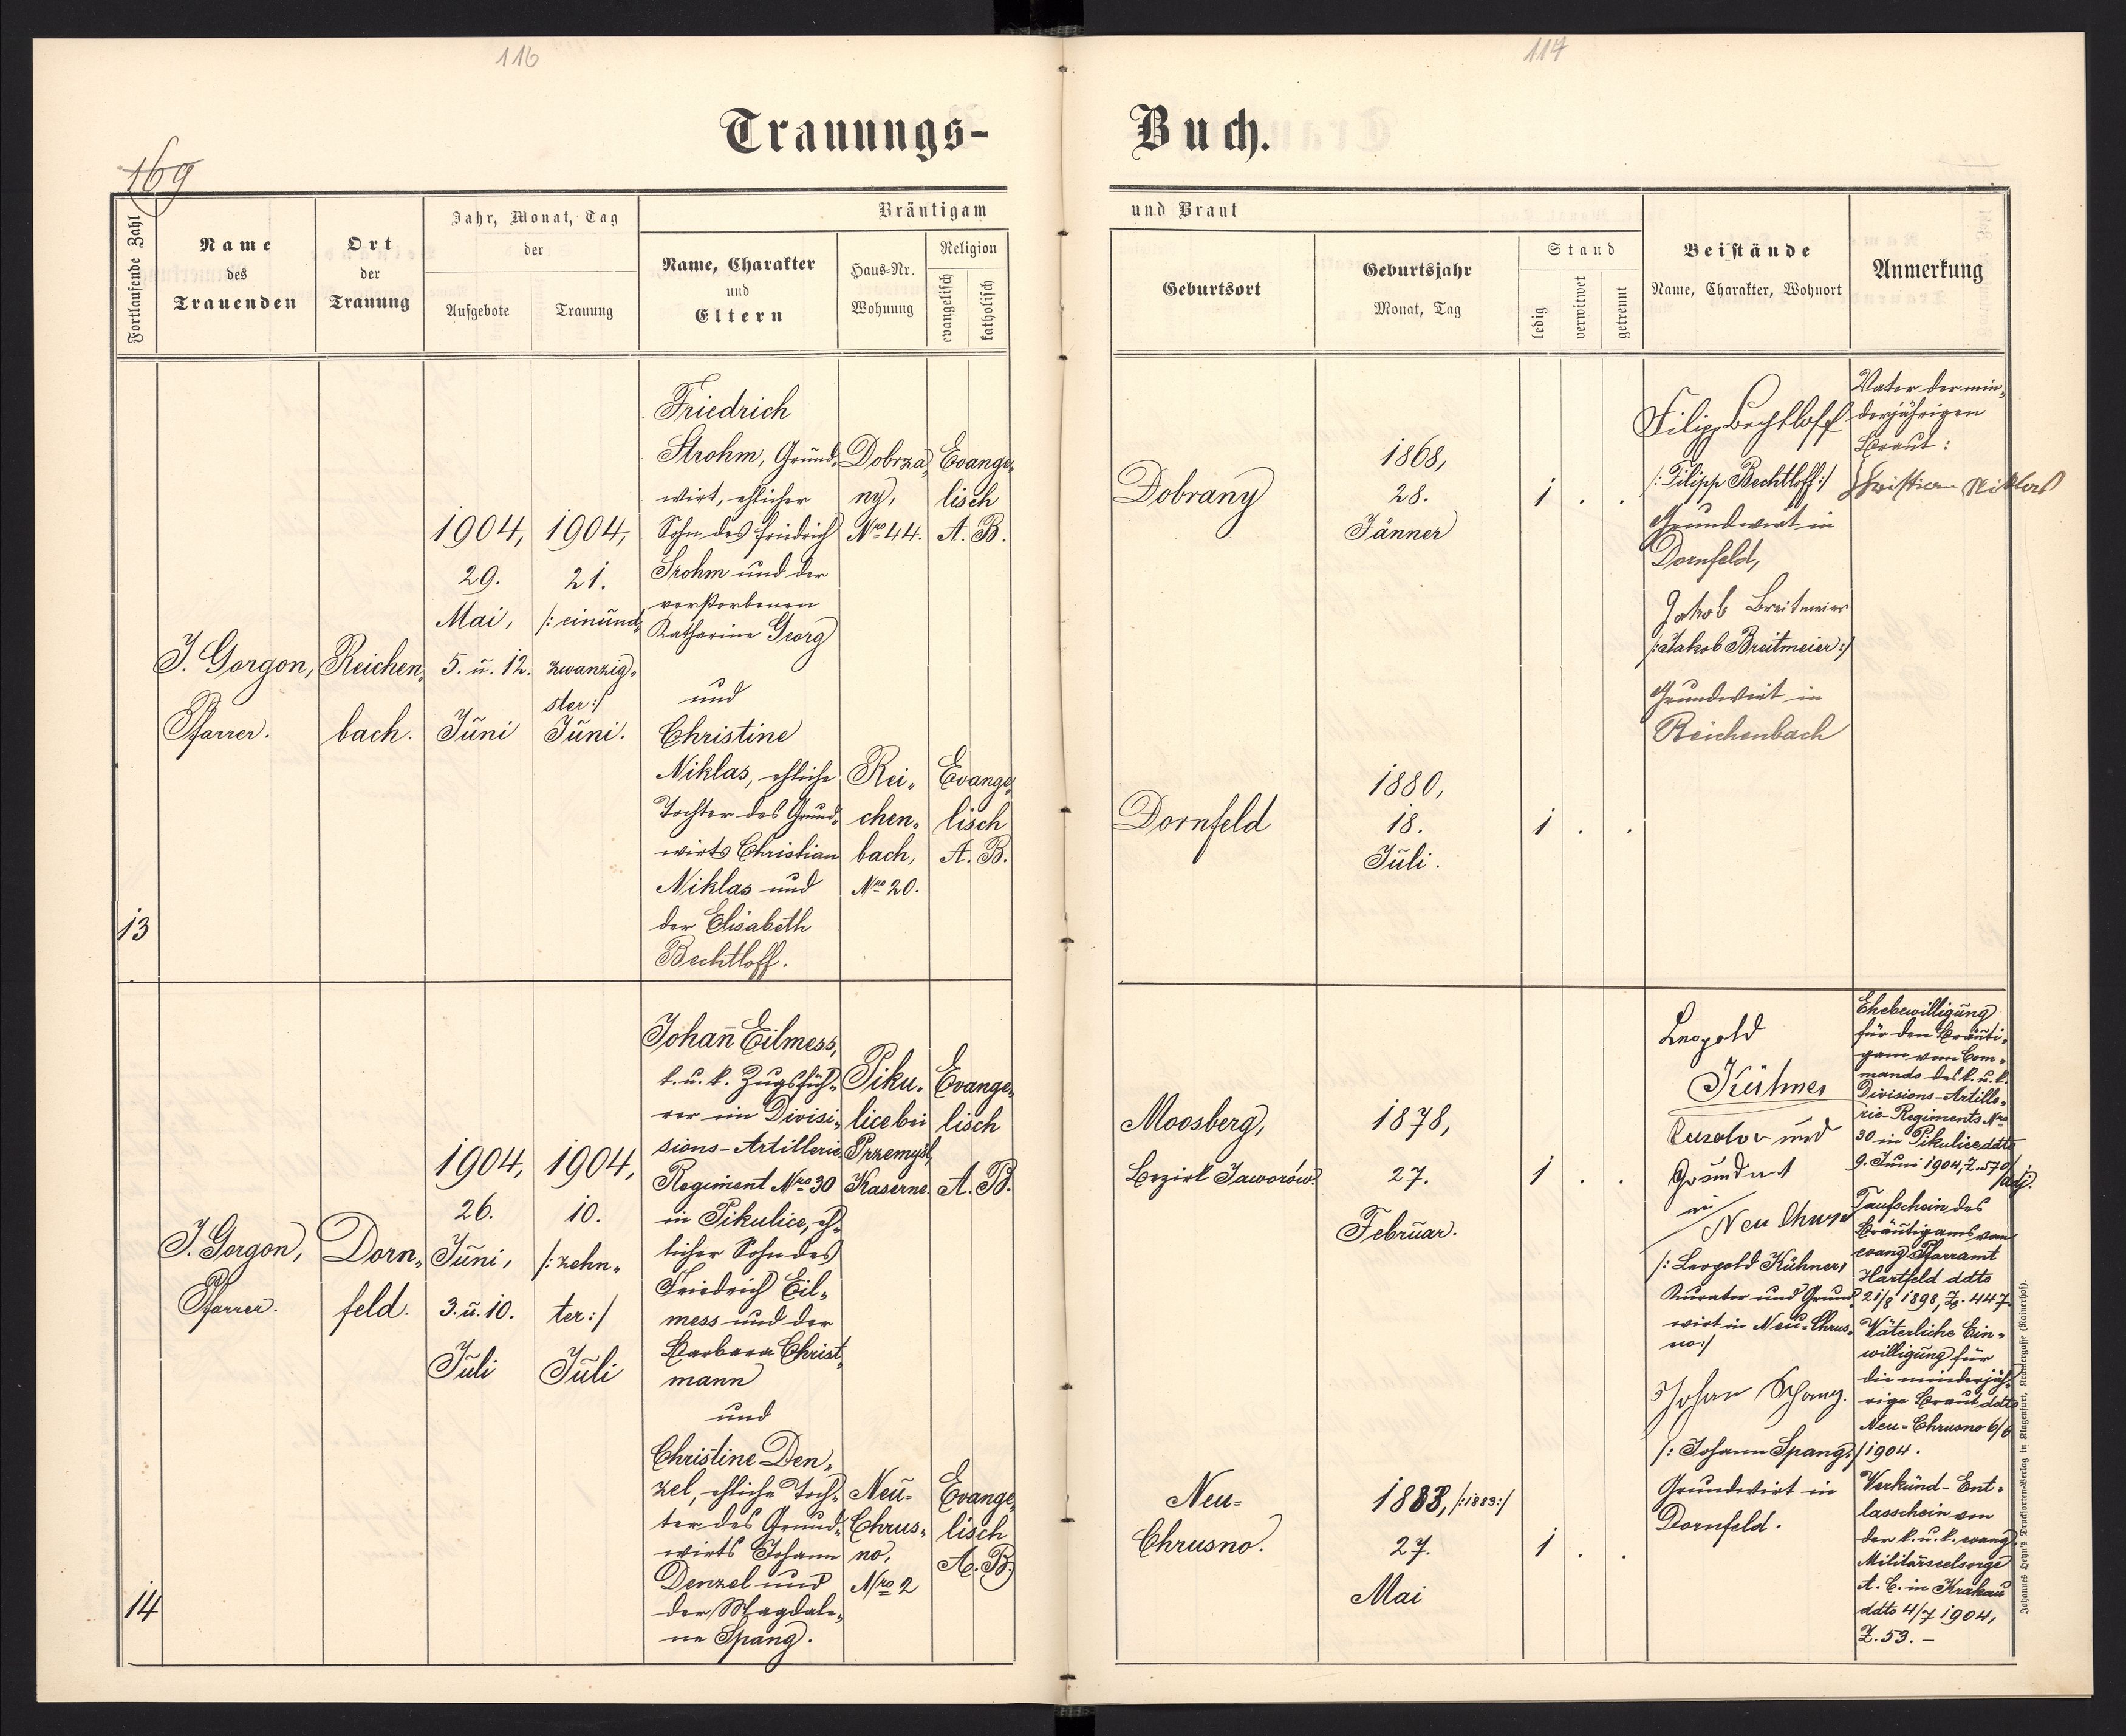 116
117
Trauungs-
Buch.
169
Fortlaufende Zahl
Name
des
Trauenden
Ort
der
Trauung
Jahr, Monat, Tag
der
Aufgebote
Trauung
Bräutigam
Name, Charakter
und
Eltern
Haus-Nr.
Wohnung
Religion
evangelisch
katholisch
und Braut
Geburtsort
Geburtsjahr
Monat, Tag
Stand
ledig
verwitwet
getrennt
Beistände
Name, Charakter, Wohnort
Anmerkung
13
J. Gorgon,
Pfarrer.
Reichen„
bach.
1904,
29.
Mai,
5. u. 12.
Juni
1904,
21.
/: einund„
zwanzig„
ster :/
Juni.
Friedrich
Strohm, Grund„
wirt, ehlicher
Sohn des Friedrich
Strohm und der
verstorbenen
Katharine Georg
und
Christine
Niklas, ehliche
Tochter des Grund„
wirts Christian
Niklas und
der Elisabeth
Bechtloff.
Dobrza„
ny,
Nro 44.
Rei„
chen„
bach,
Nro 20.
Evange„
lisch
A. B.
Evange„
lisch
A. B.
Dobrany
Dornfeld
1868,
28.
Jänner
1880,
18.
Juli.
1 . .
1 . .
Filipp Bechtloff
/: Filipp Bechtloff :/
Grundwirt in
Dornfeld,
Jakob Breitmeier
/: Jakob Breitmeier :/
Grundwirt in
Reichenbach
Vater der min„
derjährigen
Braut:
Christian Niklas
14
J. Gorgon,
Pfarrer.
Dorn„
feld.
1904,
26.
Juni,
3. u. 10.
Juli
1904,
10.
/: zehn„
ter :/
Juli
Johann Eilmess,
k. u. k. Zugsfüh„
rer im Divisi„
sions-Artillerie
Regiment Nro 30
in Pikulice, eh„
licher Sohn des
Friedrich Eil„
mess und der
Barbara Christ„
mann
und
Christine Den„
zel, ehliche Toch„
ter des Grund„
wirts Johann
Denzel und
der Magdale„
ne Spang.
Piku„
lice bei
Przemyśl,
Kaserne.
Neu-
Chrus„
no,
Nro 2
Evange„
lisch
A. B.
Evange„
lisch
A. B.
Moosberg,
Bezirk Jaworów
Neu-
Chrusno.
1878,
27.
Februar.
1883, /: 1883 :/
27.
Mai
1 . .
1 . .
Leopold
Kühner
Kurator und
Grundwirt
in
Neu Chrusno
/: Leopold Kühner,
Kurator und Grund„
wirt in Neu-Chrus„
no :/
Johan Spang.
/: Johann Spang, :/
Grundwirt in
Dornfeld.
Ehebewilligung
für den Bräuti„
gam vom Com„
mando des k. u. k.
Divisions-Artille„
rie-Regiments Nro
30 in Pikulice ddto
9. Juni 1904, Z. 570/
adj.
Taufschein des
Bräutigams vom
evang. Pfarramt
Hartfeld ddto
21/8 1898, Z. 447
Väterliche Ein„
willigung für
die minderjäh„
rige Braut ddto
Neu-Chrusno 6/6
1904.
Verkünd-Ent„
lasschein von
der k. u. k. evang.
Militärseelsorge
A. C. in Krakau
ddto 4/7 1904,
Z. 53. –
Johannes Heyn's Drucksorten-Verlag in Klagenfurt, Kramergasse (Rainerhof).